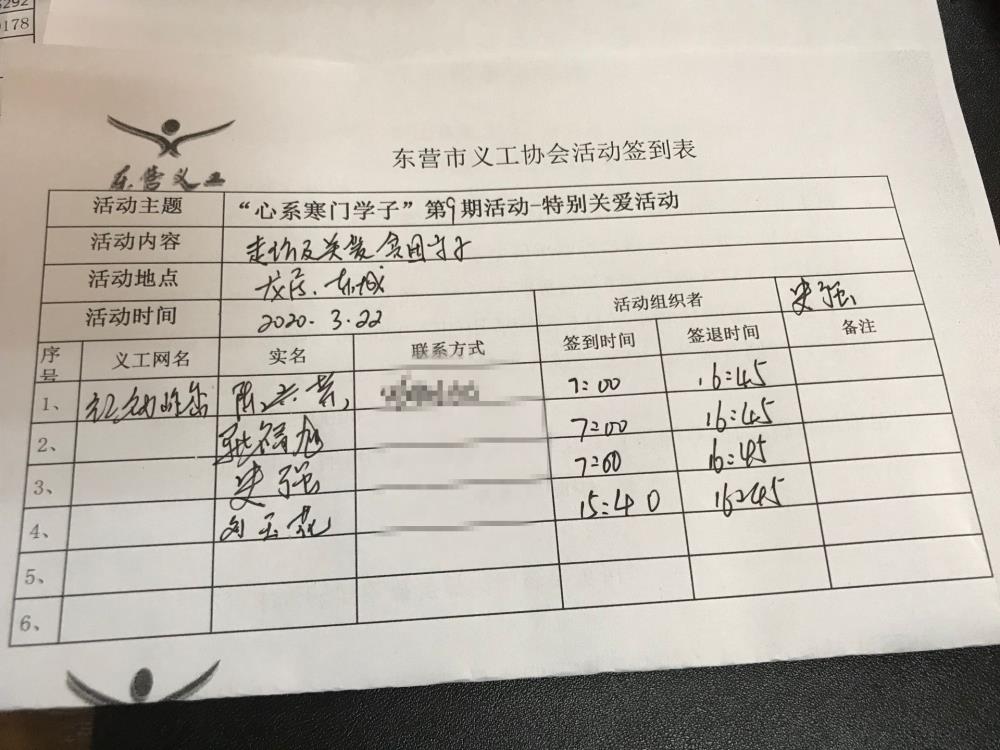 0178
东营义工
东营市义工协会活动签到表
活动主题 “心系寒门学子”第9期活动-特别关爱活动
活动内容 走访及关爱贫困学子
活动地点 龙居、东城
活动时间 2020.3.22 活动组织者 史强
序号 义工网名 实名 联系方式 签到时间 签退时间 备注
1、 7:00 16:45
2、 7:00 16:45
3、 史强 7:00 16:45
4、 15:40 16:45
5、
6、